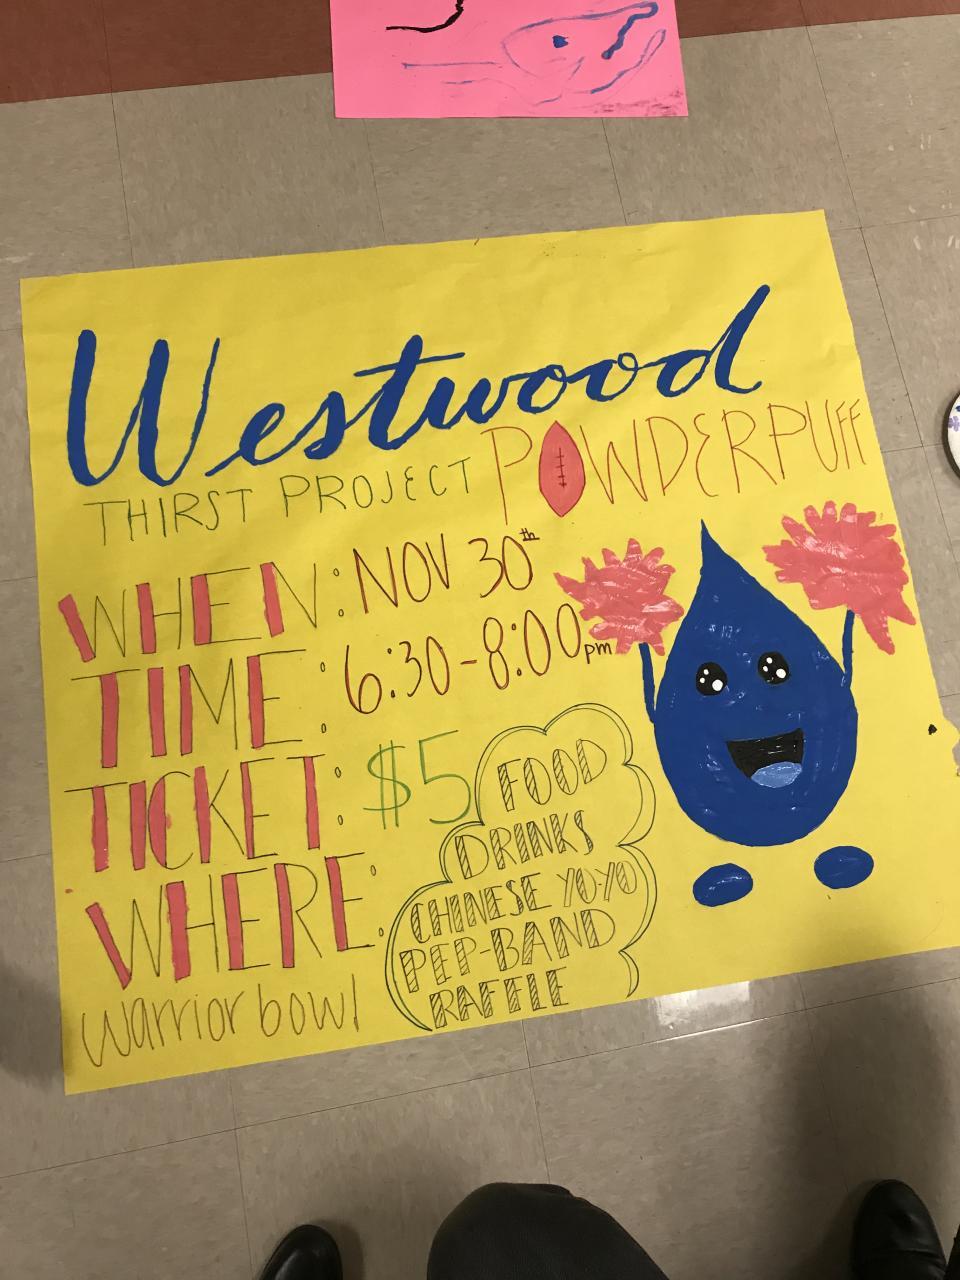 Westwood
THIRST PROJECT POWDERPUFF
WHEN: NOV 30th
TIME: 6:30-8:00pm
TICKET: $5
WHERE:
warrior bowl
FOOD
DRINKS
CHINESE YO-YO
PEP-BAND
RAFFLE